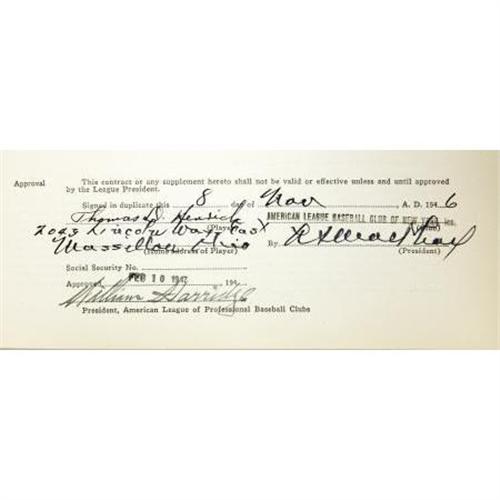 Approval This contract or any supplement hereto shall not be valid or effective unless and until approved
by the League President.
Signed in duplicate this 8 day of Nov A. D. 1946
Thomas D Henrich AMERICAN LEAGUE BASEBALL CLUB OF NEW YORK, Inc.
(Player) (Club)
2023 Lincoln Way East
Massillon Ohio By
(Home Address of Player) (President)
Social Security No.
Approved FEB 10 1947 194
William Harridge
President, American League of Professional Baseball Clubs